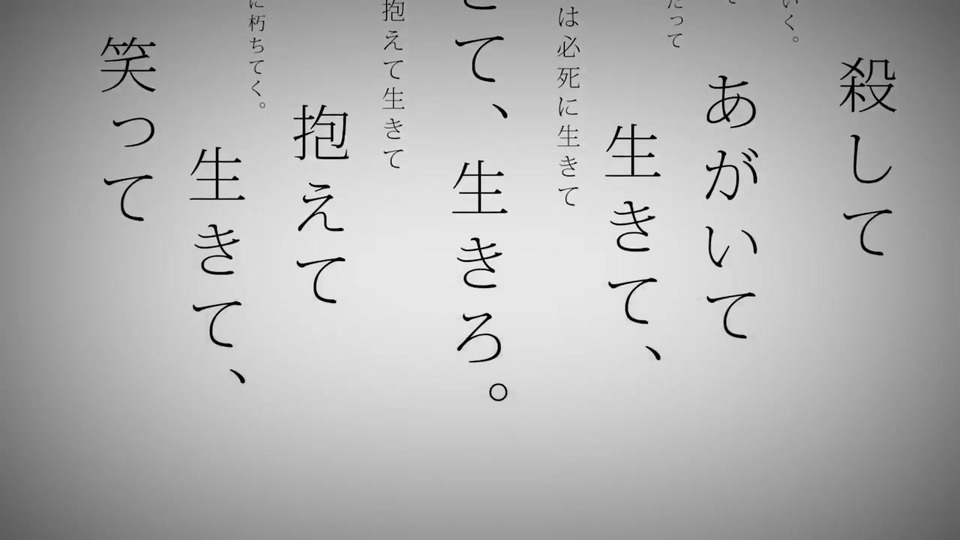 殺して
いく。
あがいて
たって
生きて、
は必死に生きて
きて、生きろ。
抱えて生きて
抱えて
に朽ちてく。
生きて、
笑って